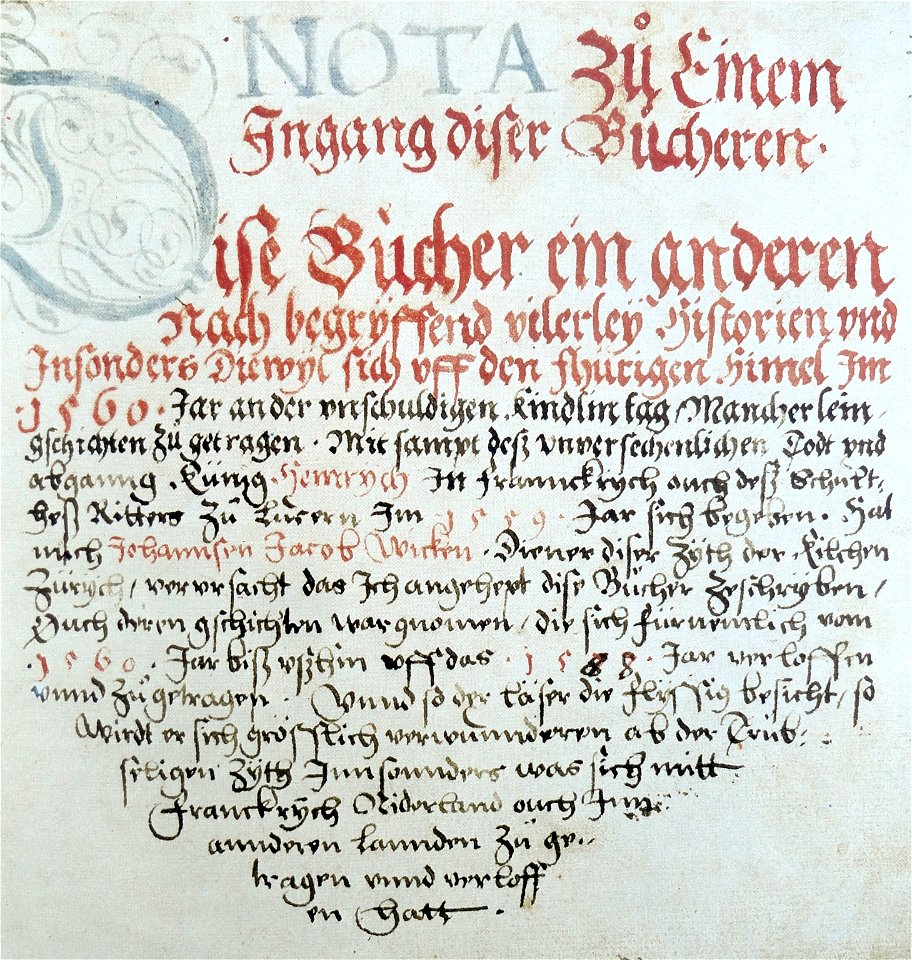 NOTA Zů Einem
Ingang diser Bücheren.
Dise Bücher ein anderen
Nach begryffend vilerley Historien vnd
Insonders Diewyl sich vff den fhürigen Himel Im
.1560. Jar an der vnschuldigen Kindlin tag / Mancherlein
gschichten Zů getragen. Mit sampt desz vnversechenlichen Todt vnd
abganng Künig Heinrych In Franckrych ouch desz Schult:
hesz Ritters Zů Lucern Im 1559. Jar sich begeben. Hat
mich Johannsen Jacob Wicken. Diener diser Zyth der Kilchen
Zürych / verursacht das Ich angehept dise Bücher Zeschryben /
Ouch deren gschichten war gnomen / die sich fürnemlich vom
.1560. Jar bisz vszhin vff das .1588. Jar verloffen
vnnd Zůgetragen. Vnnd so der Läser die flyssig besicht / so
Wirdt er sich grösstlich verwunnderen ab der Trüb:
seligen Zyth Innsonnders was sich mitt
Franckrych Niderland ouch Inn
annderen Lannden Zů ge:
tragen vnnd verloff
en Hatt.